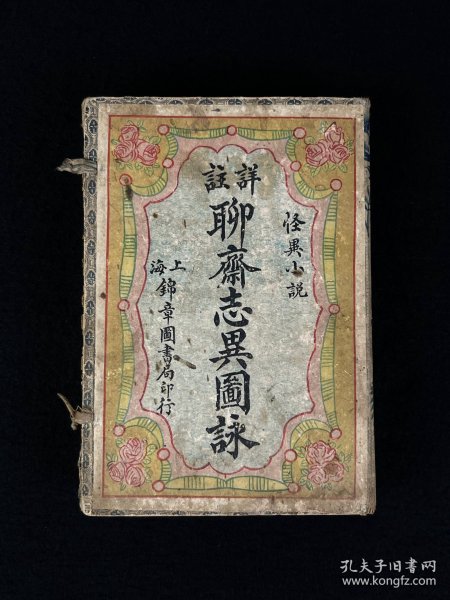 怪異小説
詳註
聊齋志異圖詠
上海
錦章圖書局印行
孔夫子旧书网
www.kongfz.com